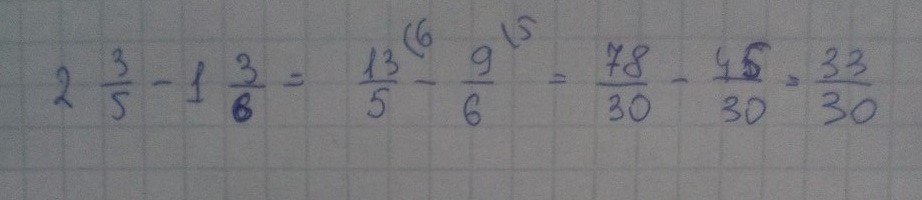 2 3/5 - 1 3/6 = 13/5 (6 - 9/6 (5 = 78/30 - 45/30 = 33/30